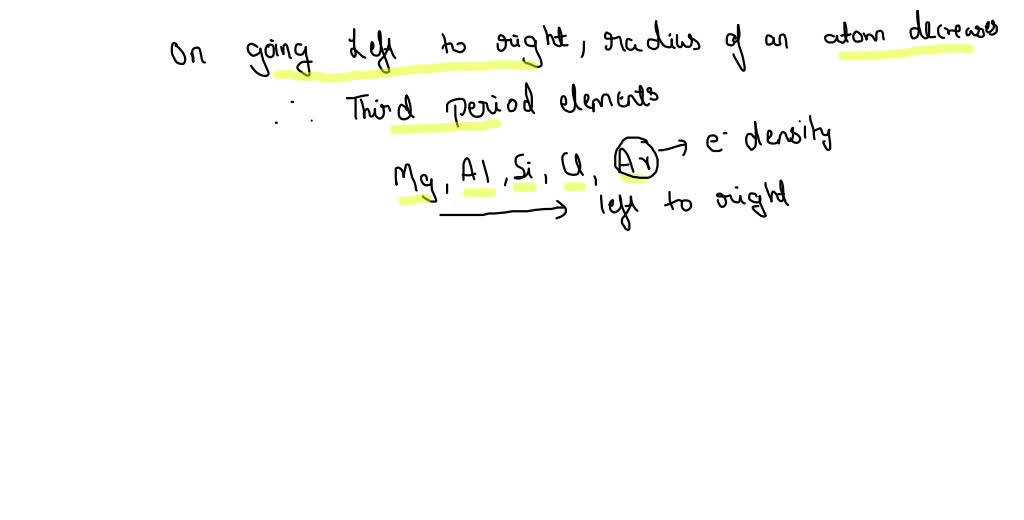 On going Left to right, radius of an atom decreases
∴ Third period elements
Mg, Al, Si, Cl, Ar → e⁻ density
→ left to right